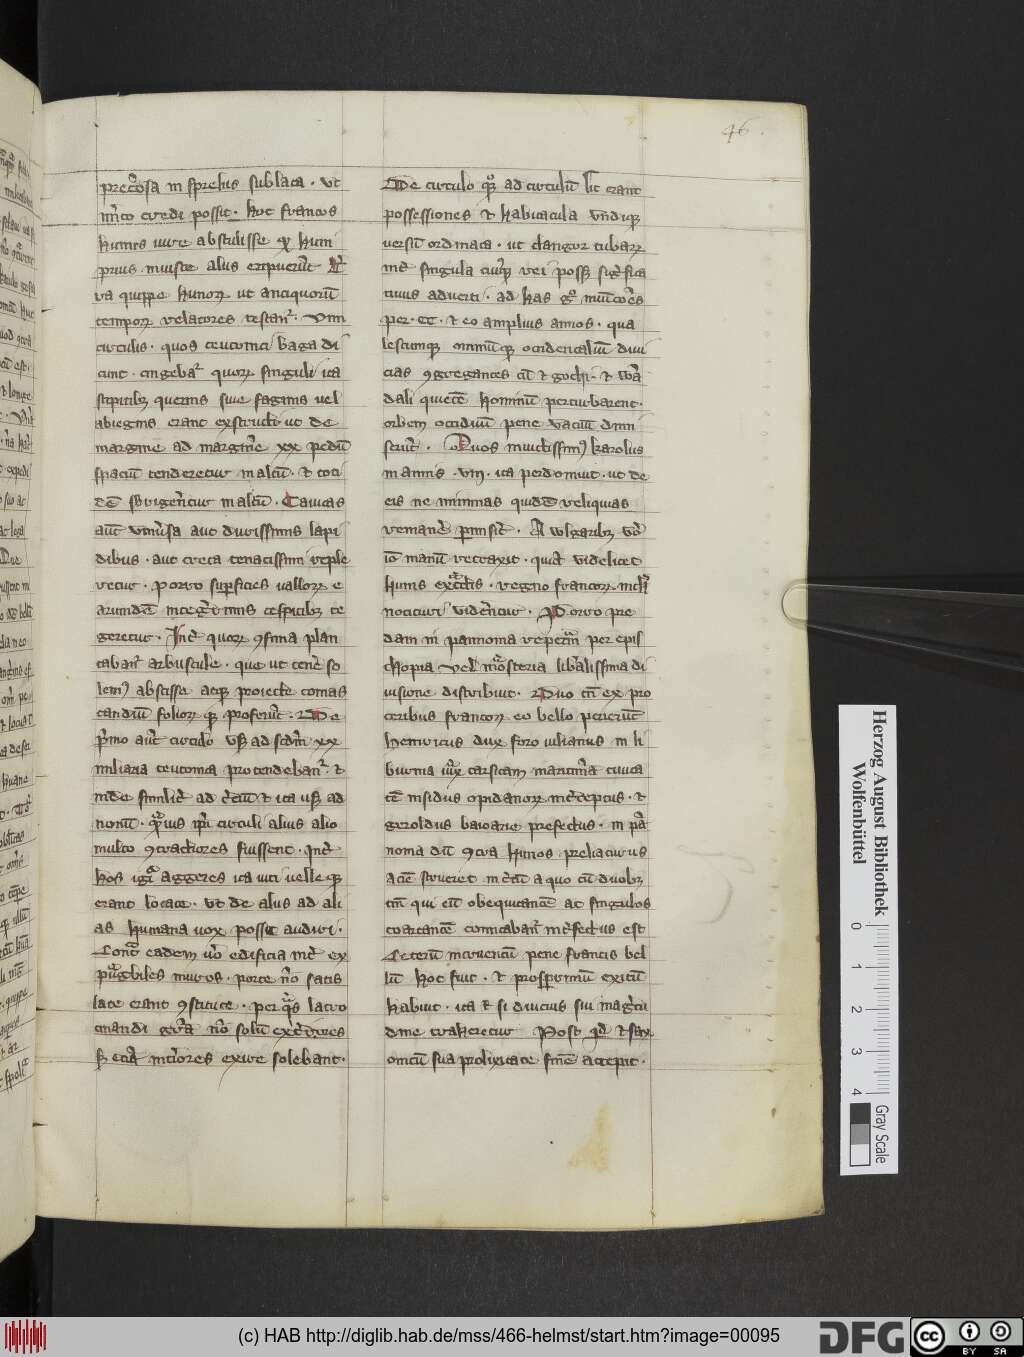 46.
preciosa in spreliis sublata. ut
merito credi possit. hoc francos
hunis iure abstulisse quod huni
prius iniuste aliis eripuerunt. Ter
ra quippe hunorum ut antiquorum
temporum relatores testantur. VIIII
circulis. quos teutonici haga di
cunt. cingebatur quorum singuli ita
stipitibus quernis siue faginis uel
abiegnis erant exstructi ut de
margine ad marginem xx pedum
spacium tenderetur in altum. et toti
dem subrigerentur in altum. Cauitas
autem vniuersa aut durissimis lapi
dibus. aut creta tenacissima reple
retur. porro superficies uallorum e
arumdem integerrimis cespitibus te
geretur. Inter quorum confinia plan
tabantur arbuscule. que ut cernitur so
lemus abscisse atque proiecte comas
caudicum foliorumque proferunt. De
primo autem circulo usque ad secundum xx
miliaria teutonica protendebantur. et
inde similiter ad tercium et ita usque ad
nonum. quamuis ipsi circuli alius alio
multo contractiores fuissent. Inter
hos igitur aggeres ita uici uilleque
erant locate. Vt de aliis ad ali
as humana uox possit audiri.
Contra eadem uero edificia inter ex
pugnabiles muros. porte non satis
late erant constitute. per quas latro
cinandi gratia non solum exteriores
sed etiam interiores exire solebant.
De circulo quoque ad circulum sic erant
possessiones et habitacula vndique
uersum ordinata. ut clangor tubarum
inter singula cuiusque rei posset significa
tiuus aduerti. ad has ergo municiones
per. CC. et eo amplius annos. qua
lescumque omniumque occidentalium diui
cias congregantes cum et gothi. et wan
dali quietem hominum perturbarent.
orbem occiduum pene vacuum dimi
serunt. Quos inuictissimus karolus
in annis. VIII. ita perdomuit. ut de
eis ne minimas quidem reliquias
remanere permiserit. A wlgaribus vero
ideo manum retraxit. quia videlicet
hunis extinctis. regno francorum nichil
nocituri viderentur. Porro pre
dam in pannonia repertam per epis
chopia vel monasteria liberalissima di
uisione distribuit. Duo tamen ex pro
ceribus francorum eo bello perierunt
henricus dux foro iulianus in li
burnia iuxta tarsicam maritimam ciuita
tem insidiis opidanorum interceptus. et
geroldus baioarie prefectus. in pan
nonia dum contra hunos preliaturus
aciem strueret incertum a quo cum duobus
tantum qui eum obequitantem ac singulos
coartantem comitabantur interfectus est
Ceterum incruentum pene francis bel
lum hoc fuit. et prosperrimum exitum
habuit. ita et si diutius sui magnitu
dine traheretur Post quod et sax
onicum sua prolixitate finem accepit.
Herzog August Bibliothek
Wolfenbüttel
0 1 2 3 4
Gray Scale
(c) HAB http://diglib.hab.de/mss/466-helmst/start.htm?image=00095
DFG
cc BY SA